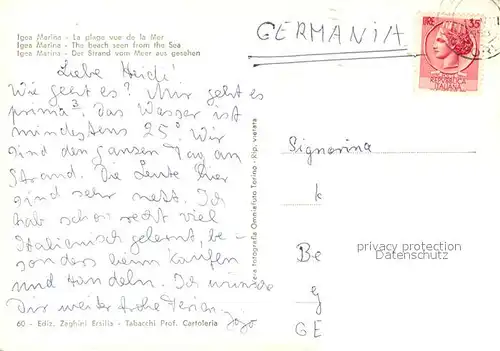 Igea Marina - La plage vue de la Mer
Igea Marina - The beach seen from the Sea
Igea Marina - Der Strand vom Meer aus gesehen
GERMANIA
IRE 35
REPUBBLICA
ITALIANA
Liebe Heidi!
Wie geht es? Mir geht es
prima. Das Wasser ist
mindestens 25° Wir
sind den ganzen Tag am
Strand. Die Leute hier
sind sehr nett. Ich
hab schon recht viel
Italienisch gelernt, be-
sonders beim Kaufen
und Handeln. Ich wünsche
Dir weiter frohe Ferien.
60 - Ediz. Zeghini Ersilia - Tabacchi Prof. Cartoleria
Vera fotografia Omniafoto Torino - Rip. vietata
Signorina
Be
GE
privacy protection
Datenschutz